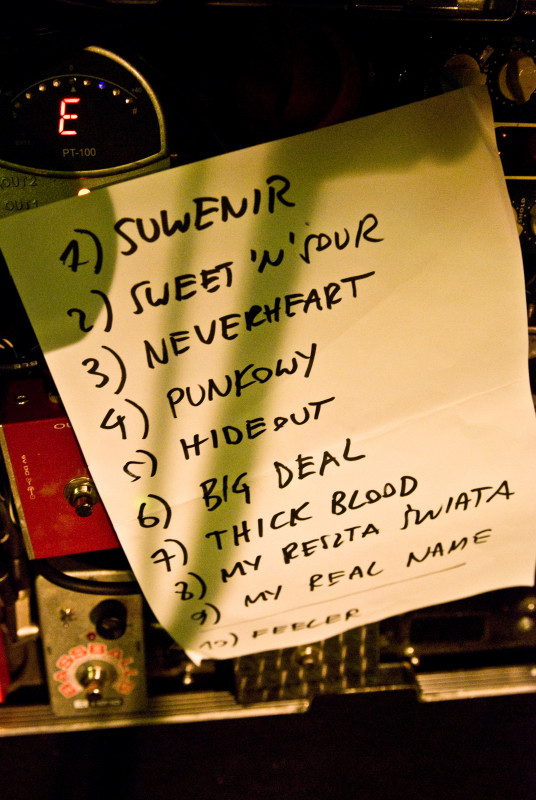 E
PT-100
OUT2
OUT1
1) SUWENIR
2) SWEET 'N' SOUR
3) NEVERHEART
4) PUNKOWY
5) HIDEOUT
6) BIG DEAL
7) THICK BLOOD
8) MY RESZTA ŚWIATA
9) MY REAL NAME
10) FEELER
BASSBALLS